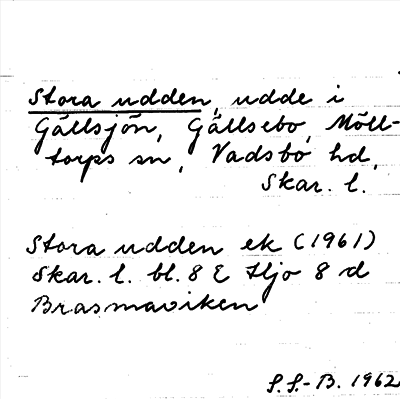 Stora udden, udde i
Gällsjön, Gällsebo, Möll-
torps sn, Vadsbo hd,
Skar. l.
Stora udden ek (1961)
Skar. l. bl. 8 E Hjo 8 d
Brasmaviken
S. S.-B. 1962